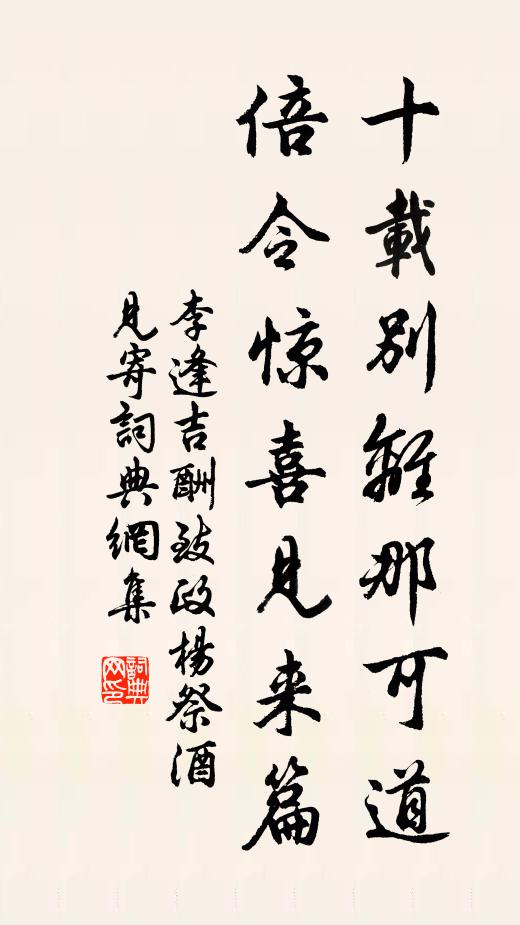 十載別離那可道
倍令惊喜見来篇
李逢吉酬致政楊祭酒
見寄詞典網集
詞典网印